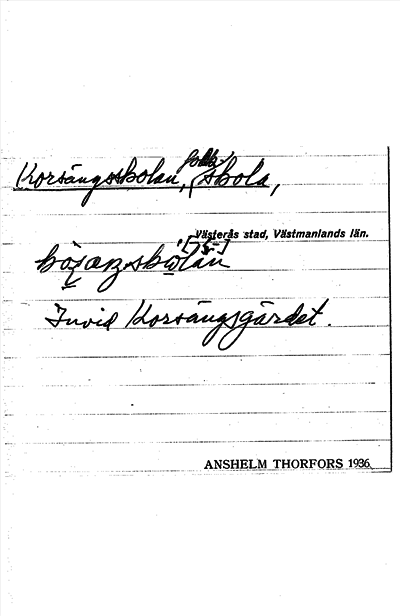 Korsängsskolan, folkskola,
Västerås stad, Västmanlands län.
Invid Korsängsgärdet.
ANSHELM THORFORS 1936.